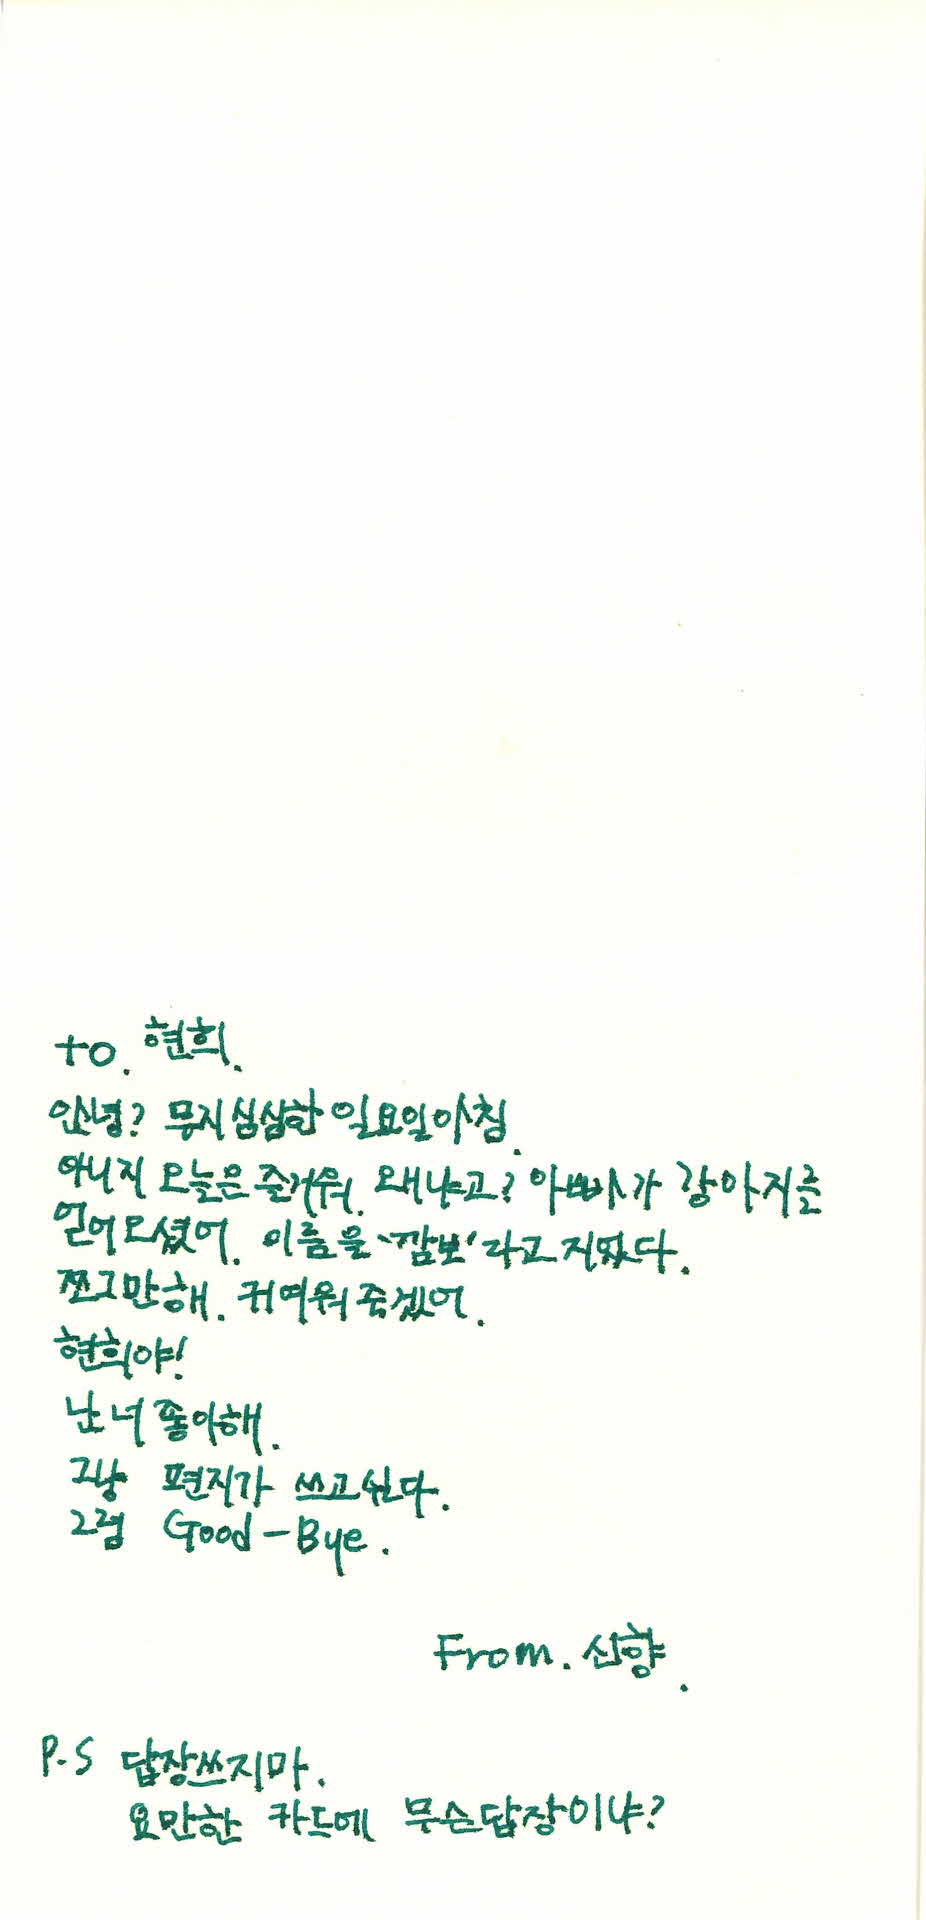 to. 현희.
안녕? 무지 심심한 일요일 아침.
아니지 오늘은 즐거워. 왜냐고? 아빠가 강아지를
얻어오셨어. 이름을 '깜보'라고 지었다.
쪼그만해. 귀여워 죽겠어.
현희야!
난 너 좋아해.
그냥 편지가 쓰고 싶다.
그럼 Good-Bye.
From. 신향.
P.S 답장쓰지마.
요만한 카드에 무슨답장이냐?